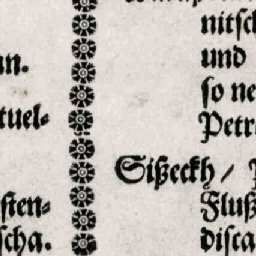 un.
tuel⸗
ſten⸗
ſcha.
nitſch
und
ſo ne
Petr
Sißeckh /
Fluß
diſca